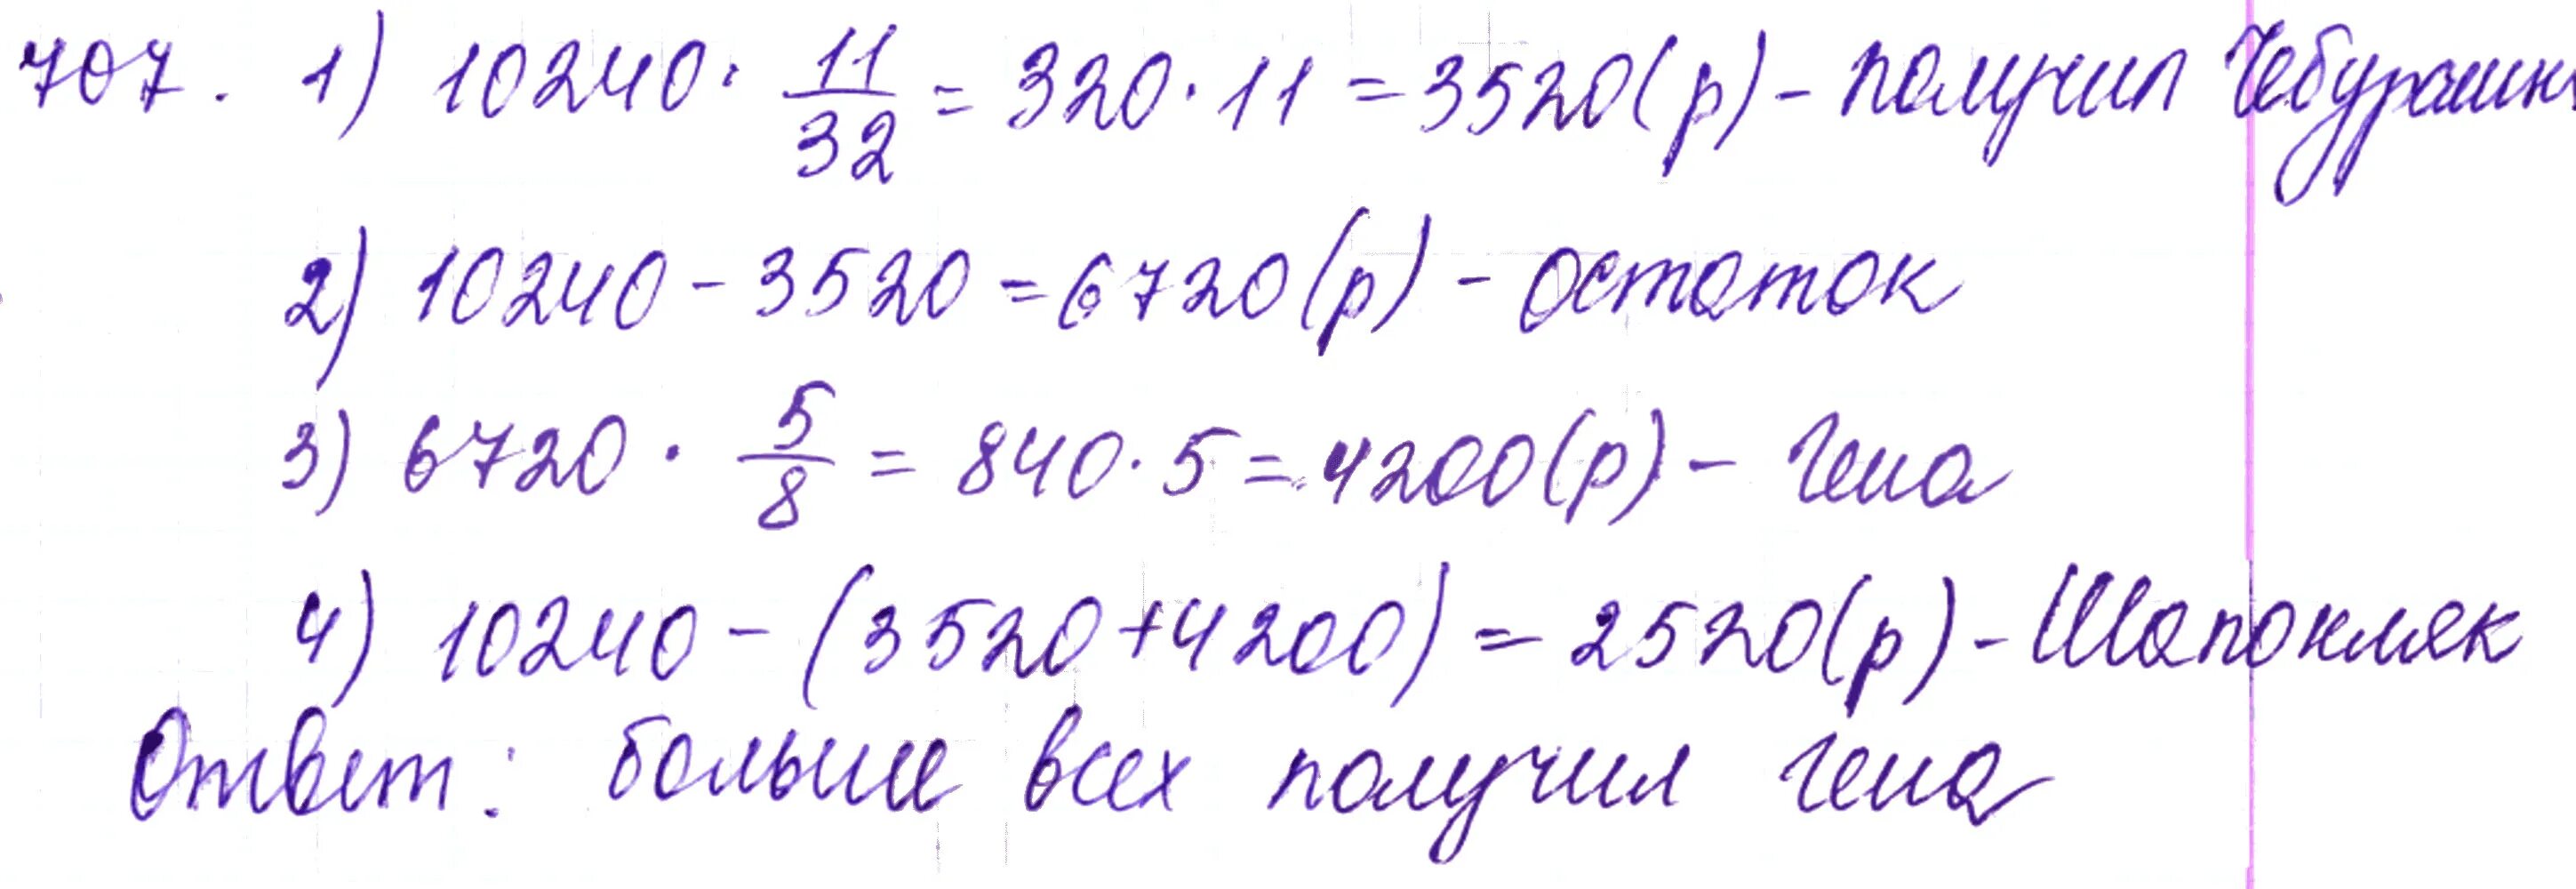 707. 1) 10240 · 11/32 = 320 · 11 = 3520(р) - получил Чебурашка
2) 10240 - 3520 = 6720(р) - остаток
3) 6720 · 5/8 = 840 · 5 = 4200(р) - Гена
4) 10240 - (3520 + 4200) = 2520(р) - Шапокляк
Ответ: больше всех получил Гена